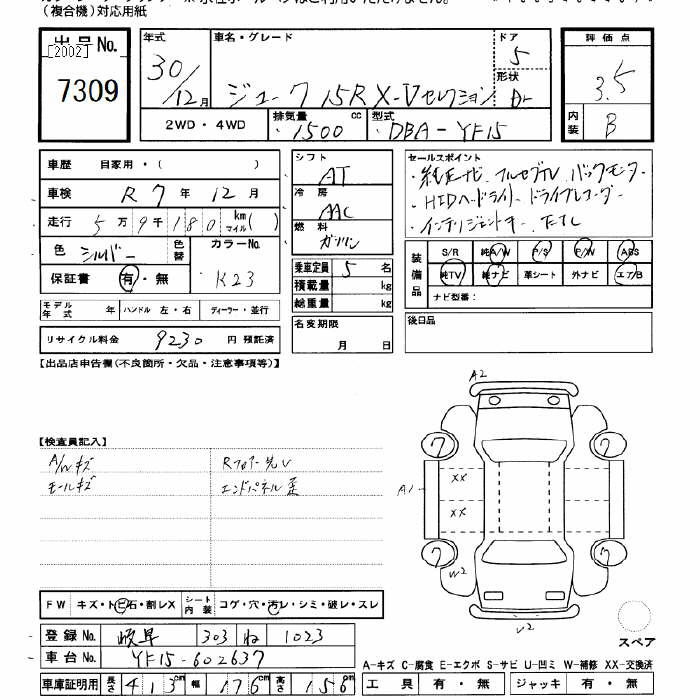 (複合機)対応用紙
出品No.
[2002]
7309
年式
30/12月
車名・グレード
ジューク 15RX-Vセレクション
ドア
5
形状
評価点
3.5
内装
B
2WD・4WD
排気量
1500 cc
型式
DBA-YF15
車歴 自家用・( )
車検 R7年12月
走行 5万9千180 km マイル( )
色 シルバー
色替
カラーNo.
K23
保証書 有・無
モデル年式 年 ハンドル 左・右 ディーラー・並行
リサイクル料金 9230 円 預託済
シフト
AT
冷房
AAC
燃料
ガソリン
乗車定員 5 名
積載量 kg
総重量 kg
名変期限
月 日
セールスポイント
・純正ナビ、フルセグTV、バックモニター
・HIDヘッドライト、ドライブレコーダー
・インテリジェントキー、ETC
装備品
S/R 純A/W P/S P/W ABS
純TV 純ナビ 革シート 外ナビ エアB
ナビ型番:
後日品
【出品店申告欄(不良箇所・欠品・注意事項等)】
【検査員記入】
A/Wキズ
モールキズ
Rフロアー先U
エンドパネル歪
A2
A1
XX
XX
7
7
7
7
W2
U2
スペア
FW キズ・トビ石・割レX
シート内装 コゲ・穴・汚レ・シミ・破レ・スレ
登録No. 岐阜 303 ね 1023
車台No. YF15-602637
車庫証明用 長さ 413cm 幅 176cm 高さ 156cm
A-キズ C-腐食 E-エクボ S-サビ U-凹ミ W-補修 XX-交換済
工具 有・無 ジャッキ 有・無